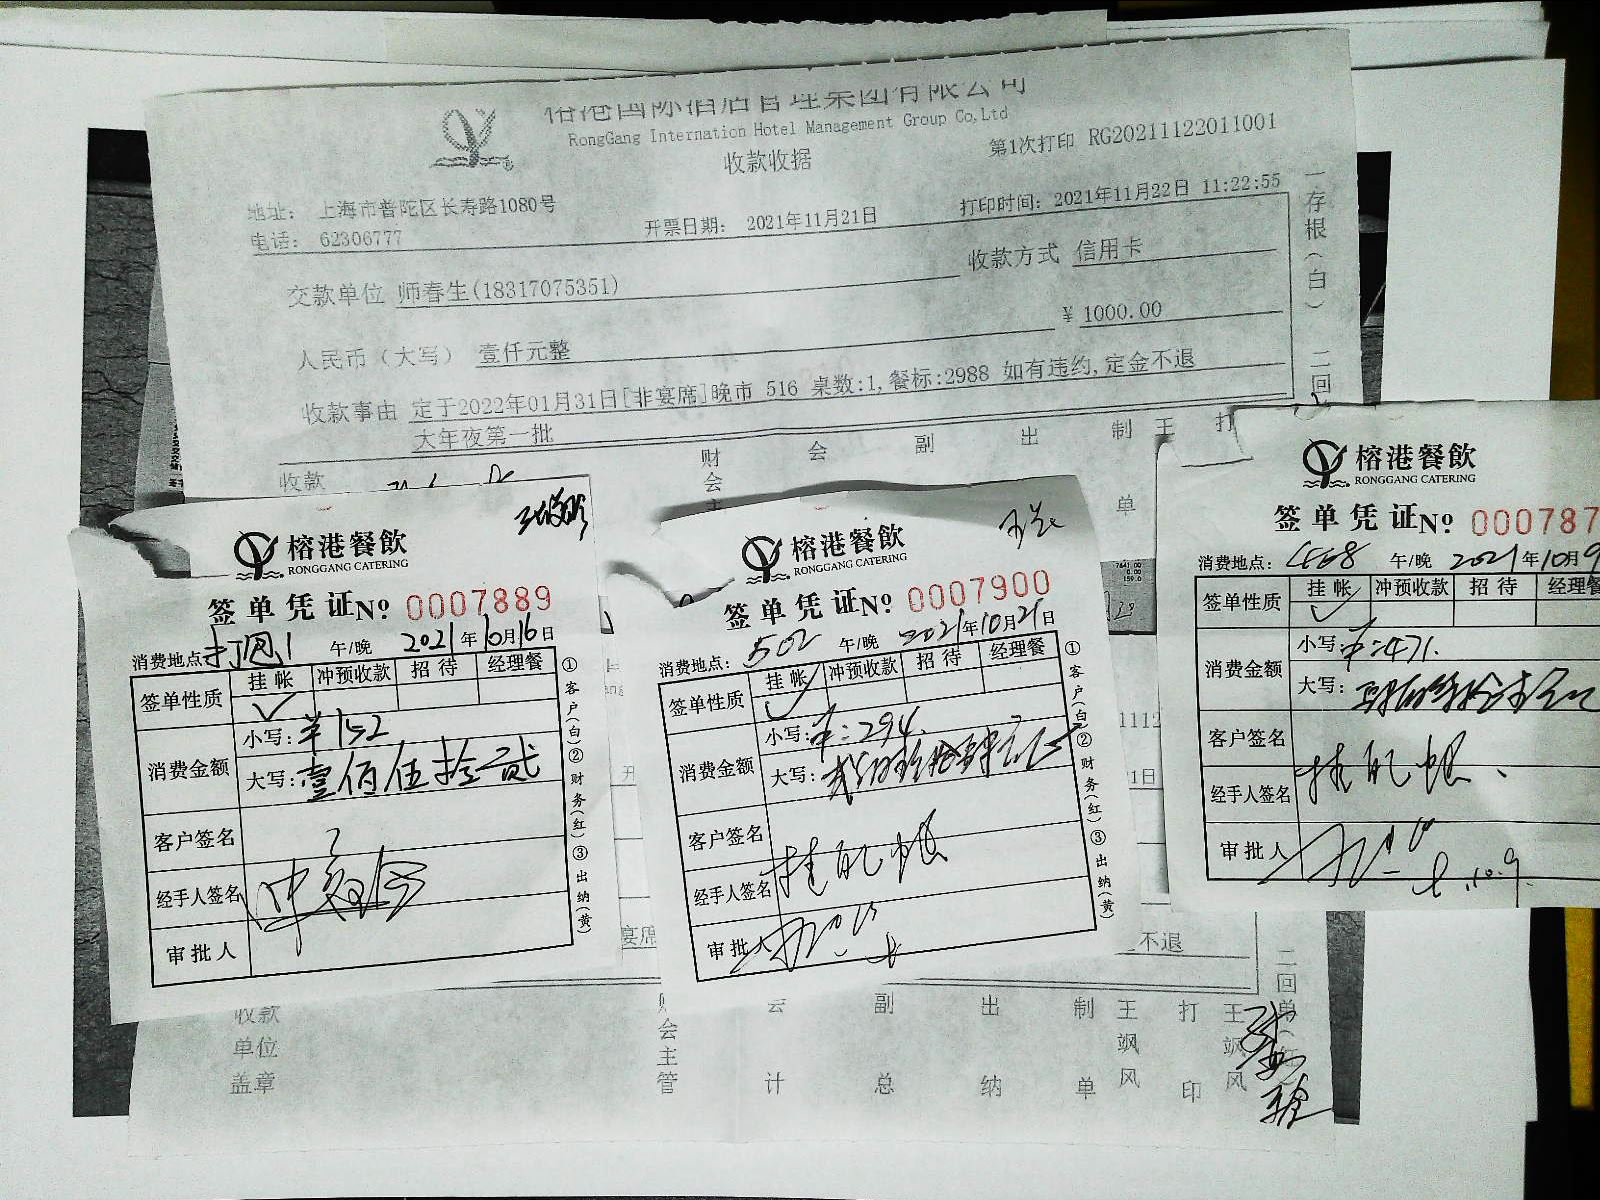 榕港国际酒店管理集团有限公司
RongGang Internation Hotel Management Group Co,Ltd
收款收据
第1次打印 RG20211122011001
地址： 上海市普陀区长寿路1080号
电话： 62306777
开票日期： 2021年11月21日
打印时间：2021年11月22日 11:22:55
交款单位 师春生(18317075351)
收款方式 信用卡
人民币（大写） 壹仟元整
¥ 1000.00
收款事由 定于2022年01月31日[非宴席]晚市 516 桌数:1,餐标:2988 如有违约,定金不退
大年夜第一批
一存根(白) 二回
收款
财会
会 副 出 制单 王 打
榕港餐飲
RONGGANG CATERING
签单凭证No 0007889
消费地点: 午/晚 2021年10月16日
签单性质 挂帐 冲预收款 招待 经理餐
✓
消费金额 小写: ¥152
大写: 壹佰伍拾贰
客户签名
经手人签名
审批人
①客户(白)②财务(红)③出纳(黄)
榕港餐飲
RONGGANG CATERING
签单凭证No 0007900
消费地点: 502 午/晚 2021年10月21日
签单性质 挂帐 冲预收款 招待 经理餐
✓
消费金额 小写: ¥:294.
大写:
客户签名
经手人签名
审批人
①客户(白)②财务(红)③出纳(黄)
榕港餐飲
RONGGANG CATERING
签单凭证No 000787
消费地点: 午/晚 2021年10月9
签单性质 挂帐 冲预收款 招待 经理餐
✓
消费金额 小写: ¥:471.
大写:
客户签名
经手人签名
审批人
10.9.
宴席
不退
二回单
收款单位盖章
财会主管
会计
副总
出纳
制单
王飒风
打印
王飒风